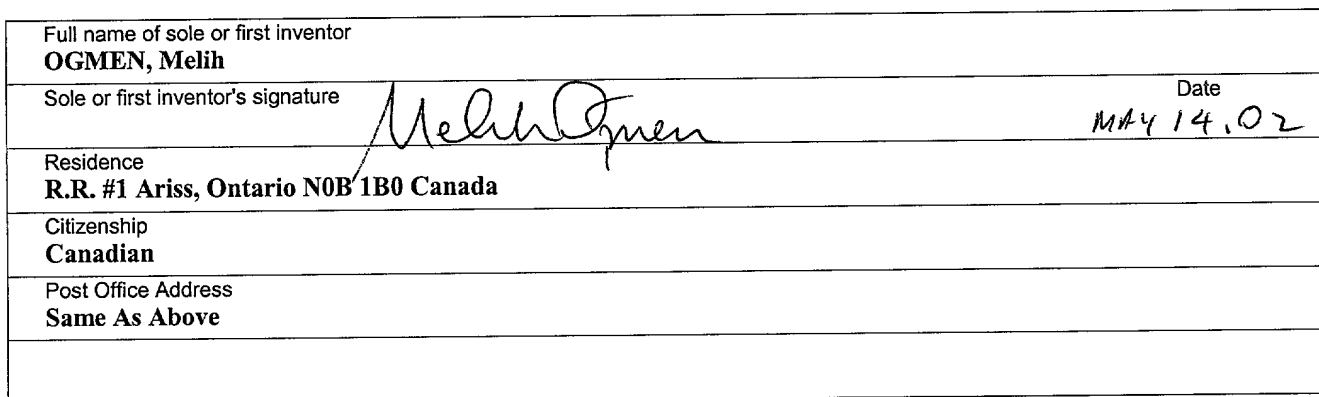 Full name of sole or first inventor
OGMEN, Melih
Sole or first inventor's signature
Melih Ogmen
Date
MAY 14, 02
Residence
R.R. #1 Ariss, Ontario N0B 1B0 Canada
Citizenship
Canadian
Post Office Address
Same As Above